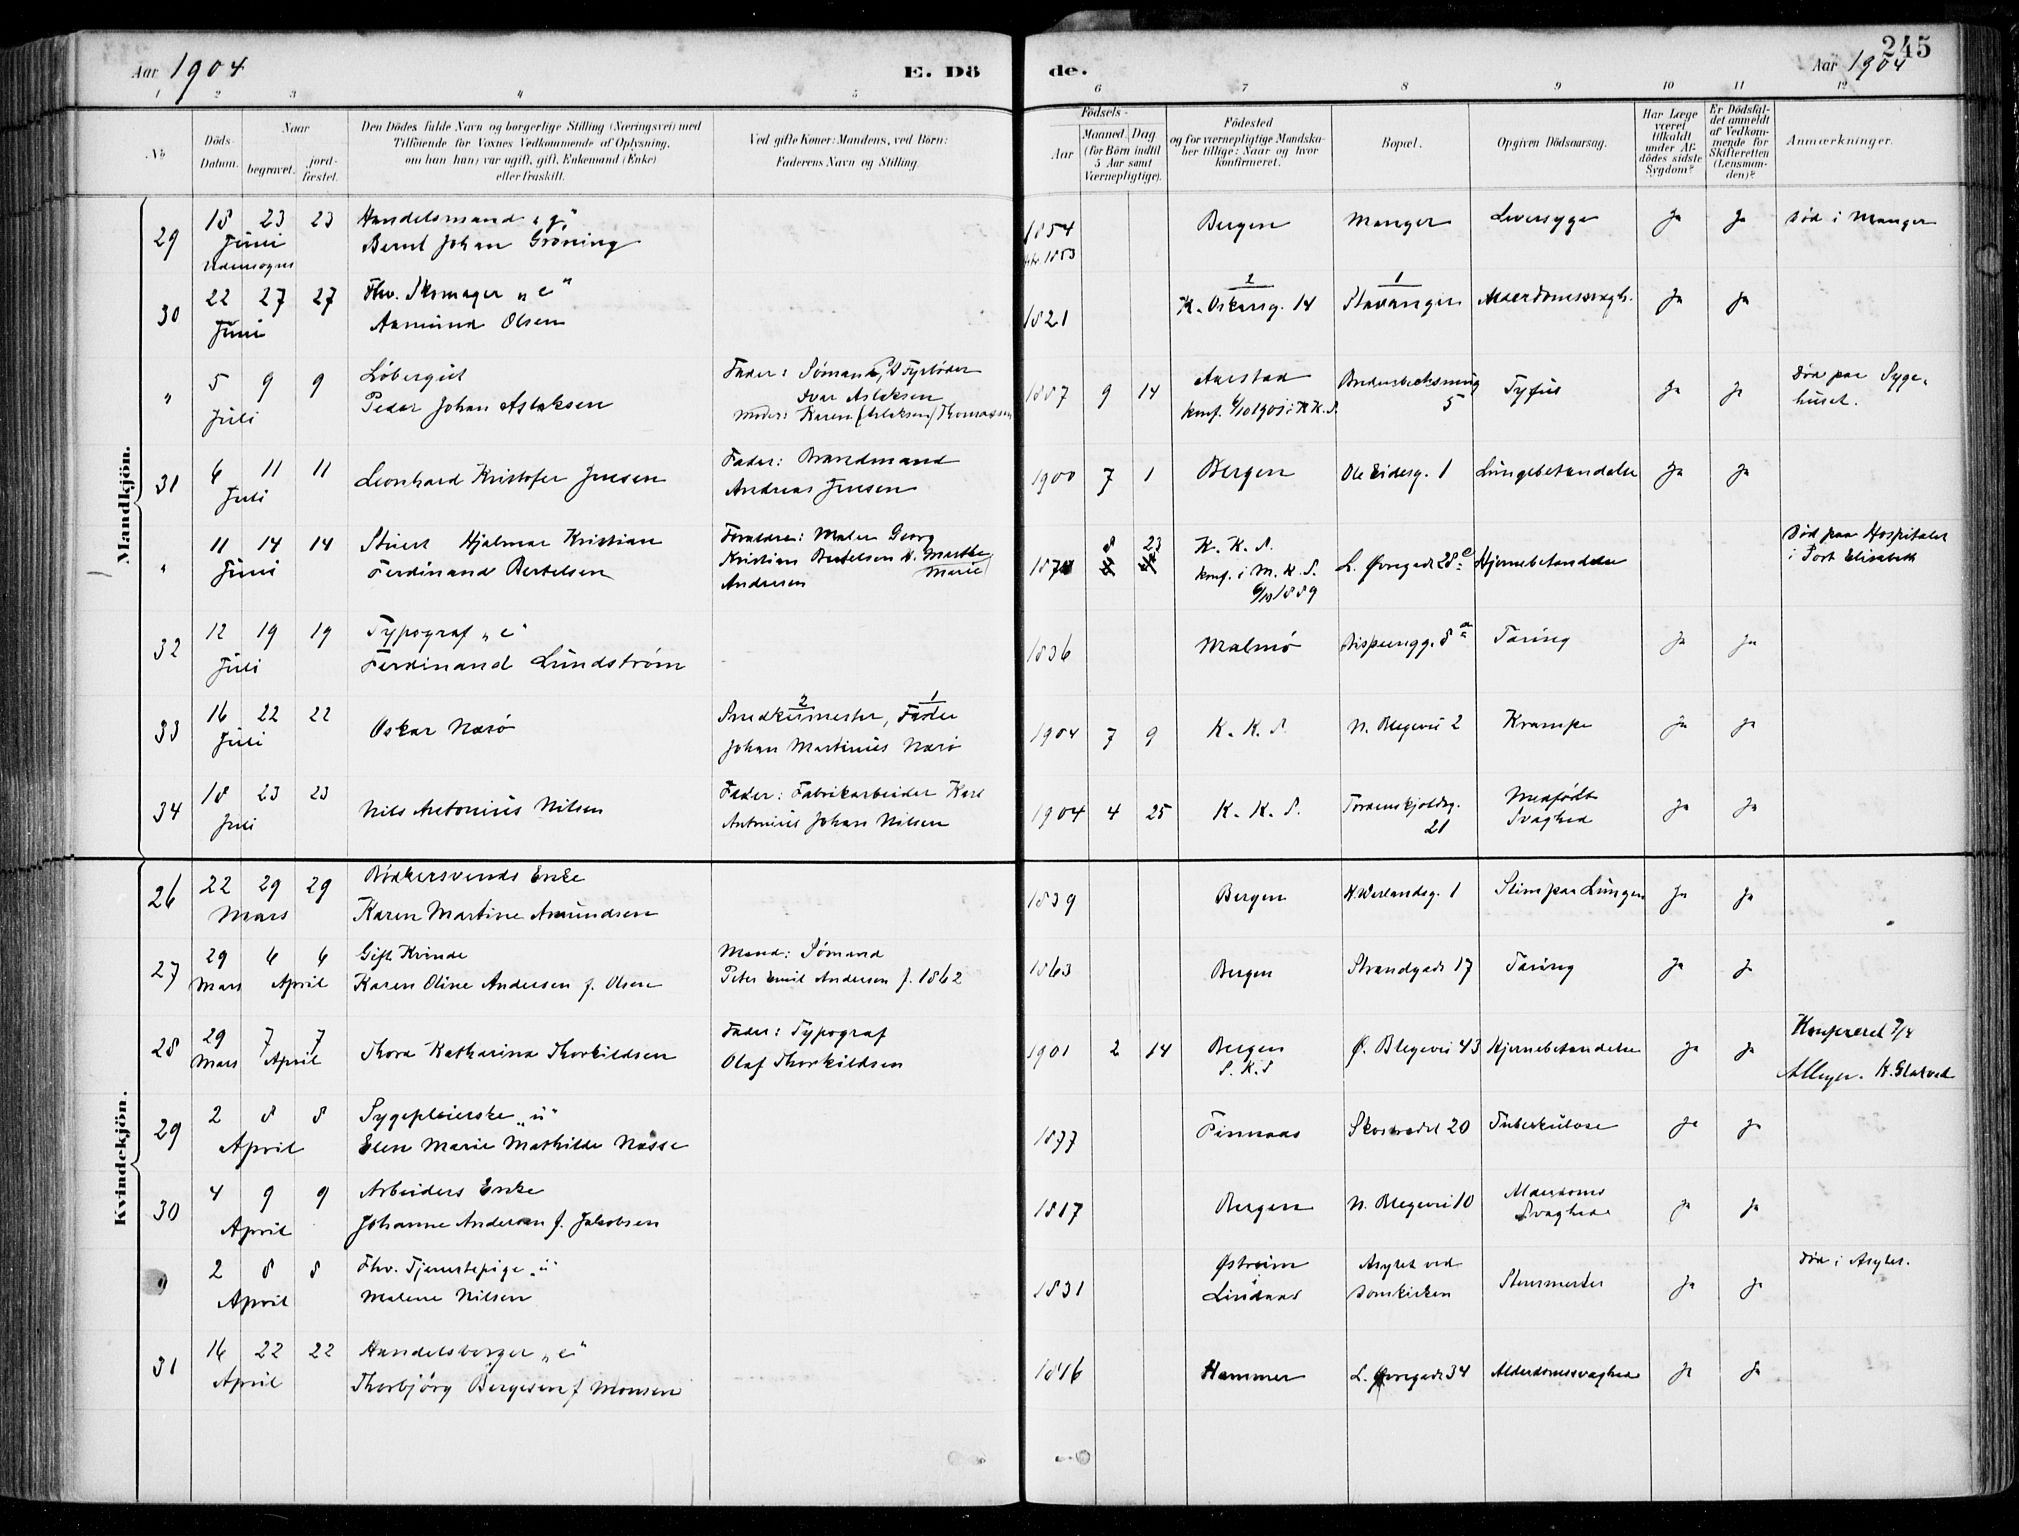 245
Aar 1904
E. Dö
de.
Aar 1904
1 2 3 4 5 6 7 8 9 10 11 12
№
Döds-
Datum.
Naar
begravet.
jord-
fæstet.
Den Dödes fulde Navn og borgerlige Stilling (Næringsvei) med
Tilföiende for Voxnes Vedkommende af Oplysning,
om han (hun) var ugift, gift, Enkemand (Enke)
eller fraskilt.
Ved gifte Koner: Mandens, ved Börn:
Faderens Navn og Stilling.
Födsels-
Aar
Maaned. Dag
(for Börn indtil
5 Aar samt
Værnepligtige).
Födested
og for værnepligtige Mandska-
ber tillige: Naar og hvor
konfirmeret.
Bopæl.
Opgiven Dödsaarsag.
Har Læge
været
tilkaldt
under Af-
dödes sidste
Sygdom?
Er Dödsfal-
det anmeldt
af Vedkom-
mende for
Skifteretten
(Lensman-
den)?
Anmærkninger.
Mandkjön.
29 18 23 23 Handelsmand "g"
Juni Bernt Johan Grøning
Udensogns
1854 Bergen Manger Leversyge Ja Ja Død i Manger
1853
30 22 27 27 Fhv. Skomager "e"
Juni Aamund Olsen
1821 2 K. Oskarsg. 14 1 Stavanger Alderdomssvagh. Ja Ja
" 5 9 9 Løbergut
Juli Peder Johan Aslaksen
Fader: Sømand, Fyrbøder
Ivar Aslaksen
Moder: Karen (Aslaksen) Thomassen
1887 9 14 Aarstad
konf. 6/10 1901 i K.K.S.
5 Tyfus Ja Ja Død paa Syge-
huset.
31 6 11 11 Leonhard Kristofer Jensen
Juli
Fader: Brandmand
Andreas Jensen
1900 7 1 Bergen Ole Eidesg. 1 Lungebetændelse Ja Ja
" 11 14 14 Stuert Hjalmar Kristian
Juni Ferdinand Bertelsen
Forældre: Maler Georg
Kristian Bertelsen H. Marthe
Marie
Andersen
187 8 23 K. K. S.
konf. i M. K. S.
6/10 1889
L. Øvregade 28 c Hjernebetændelse
Død paa Hospitalet
i Port Elisabeth
32 12 19 19 Typograf "e"
Juli Ferdinand Lundstrøm
1836 Malmø Bispeengg. 8 a Tæring Ja Ja
33 16 22 22 Oskar Næsø
Juli
2 Smedkermester, 1 Fader
Johan Martinus Næsø
1904 7 9 K. K. S. N. Blegevei 2 Krampe Ja Ja
34 18 23 23 Nils Antonius Nilsen
Juli
Fader: Fabrikarbeider Karl
Antonius Johan Nilsen
1904 4 25 K. K. S. Tordenskjoldsg.
21
Medfødt
Svaghed Ja Ja
Kvindekjön.
26 22 29 29 Bødkersvends Enke
Mars Karen Martine Amundsen
1839 Bergen H. Werlandsg. 1 Slim paa Lungen Ja Ja
27 29 6 6 Gift Kvinde
Mars April Karen Oline Andersen f. Olsen
Mand: Sømand
Peter Emil Andersen f. 1862
1863 Bergen Strandgade 17 Tæring Ja Ja
28 29 7 7 Thora Katharina Thorkildsen
Mars April
Fader: Typograf
Olaf Thorkildsen
1901 2 14 Bergen
S. K. S
Ø. Blegevei 43 Hjernebetændelse Ja Ja
Konfereret 7/4
29 2 8 8 Sygepleierske "u"
April Elen Marie Mathilde Næsse
1877 Finnaas Skostrædet 20 Tuberkulose Ja Ja
30 4 9 9 Arbeiders Enke
April Johanne Andersen f. Jakobsen
1817 Bergen N. Blegevei 10 Alderdoms
Svaghed Ja Ja
" 2 8 8 Fhv. Tjenestepige "u"
April Malene Nilsen
1831 Østreim
Lindaas
Asylet ved
Domkirken
Stensmerter Ja Ja Død i Asylet.
31 16 22 22 Handelsborger "e"
April Thorbjörg Bergesen f Monsen
1846 Hammer L. Øvregade 34 Alderdomssvaghed Ja Ja